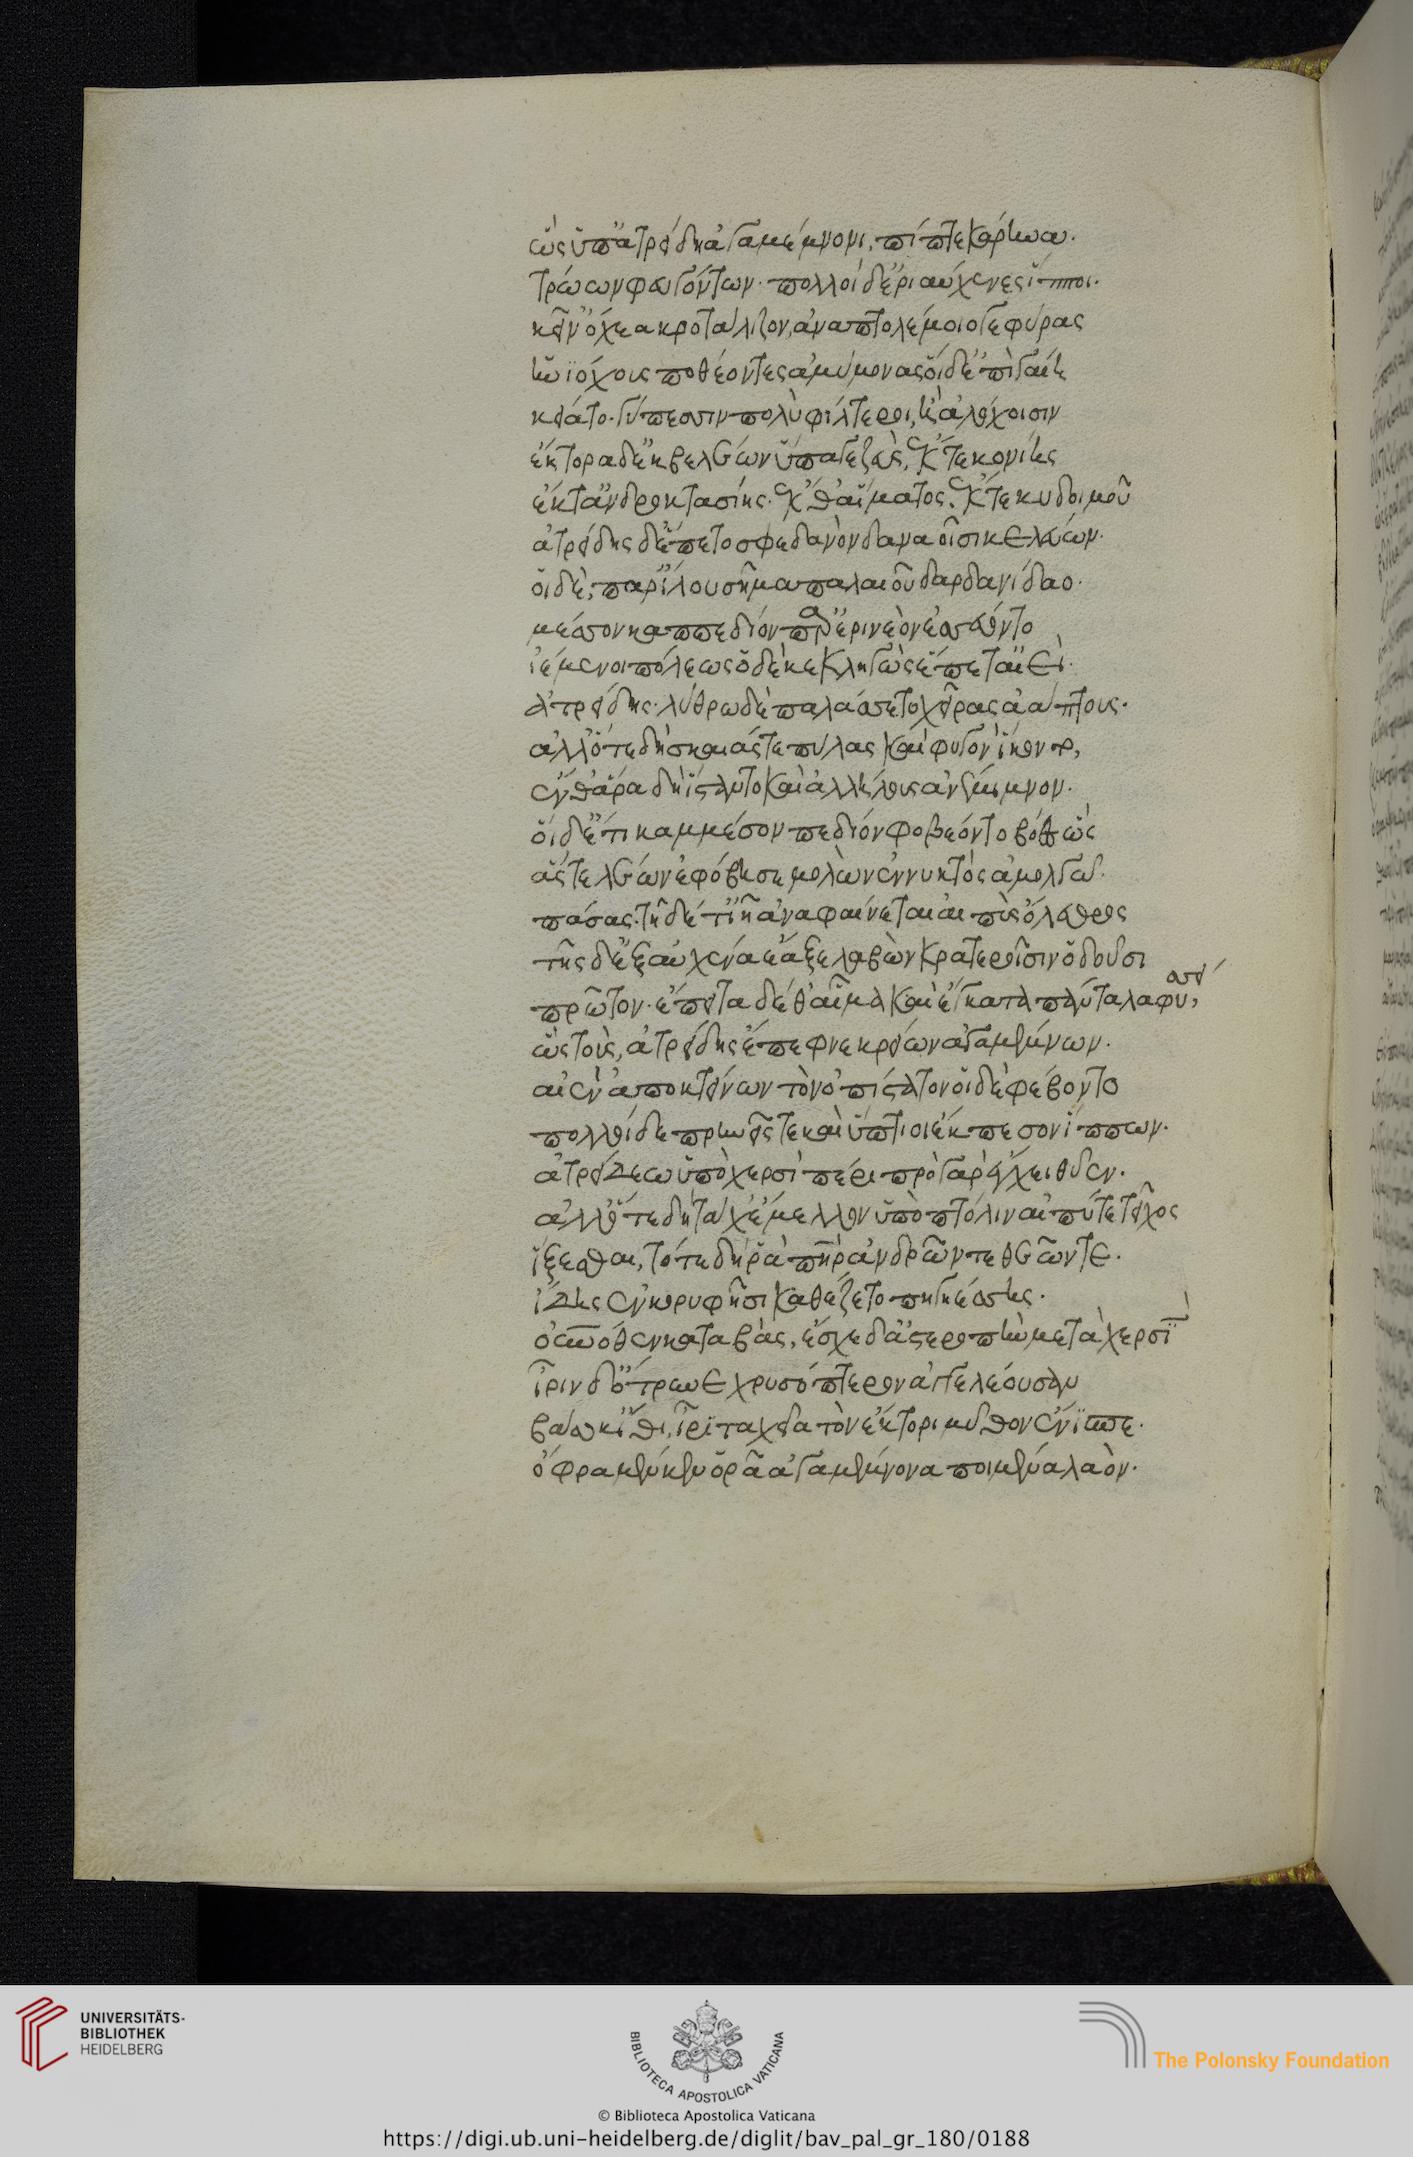 ὣς ὑπ' ἀτρείδη ἀγαμέμνονι, πίπτε κάρηνα.
τρώων φευγόντων· πολλοὶ δ' ἐριαύχενες ἵπποι.
κείν' ὄχεα κροτάλιζον, ἀνὰ πτολέμοιο γεφύρας
ἡνιόχους ποθέοντες ἀμύμονας· οἱ δ' ἐπὶ γαίῃ
κείατο. γύπεσσιν πολὺ φίλτεροι, ἢ ἀλόχοισιν
ἕκτορα δ' ἐκ βελέων ὕπαγε ζεὺς, ἔκ τε κονίης
ἔκ τ' ἀνδροκτασίης. ἔκ θ' αἵματος. ἔκ τε κυδοιμοῦ
ἀτρείδης δ' ἕπετο σφεδανὸν δαναοῖσι κελεύων.
οἱ δὲ, παρ' ἴλου σῆμα παλαιοῦ δαρδανίδαο.
μέσσον καππεδίον παρ' ἐρινεὸν ἐσσεύοντο
ἱέμενοι πόλεως ὁ δὲ κεκληγὼς ἕπετ' αἰεὶ.
ἀτρείδης. λύθρω δὲ παλάσσετο χεῖρας ἀάπτους.
ἀλλ' ὅτε δὴ σκαιάς τε πύλας καὶ φυγὸν ἵκοντο,
ἔνθ' ἄρα δὴ ἵσταντο καὶ ἀλλήλους ἀνέμιμνον.
οἱ δ' ἔτι καμμέσον πεδίον φοβέοντο βόες ὣς
ἅς τε λέων ἐφόβησε μολὼν ἐν νυκτὸς ἀμολγῶ.
πάσας. τῆ δέ τ' ἰῆ ἀναφαίνεται αἰπὺς ὄλεθρος
τῆς δ' ἐξ αὐχένα ἔαξε λαβὼν κρατεροῖσιν ὀδοῦσι
πρῶτον. ἔπειτα δέ θ' αἷμα καὶ ἔγκατα πάντα λαφύσσει,
ὣς τοὺς, ἀτρείδης ἔπεφνε κρείων ἀγαμέμνων.
αἰὲν ἀποκτείνων τὸν ὀπίστατον οἱ δὲ φέβοντο
πολλοὶ δὲ πρηνεῖς τε καὶ ὕπτιοι ἔκπεσον ἵππων.
ἀτρείδεω ὑπὸ χερσί περιπρὸ γὰρ ἔγχει θῦεν.
ἀλλ' ὅτε δὴ τάχ' ἔμελλον ὑπὸ πτόλιν αἰπύ τε τεῖχος
ἵξεσθαι, τότε δή ρα πατὴρ ἀνδρῶν τε θεῶν τε.
ἴδης ἐν κορυφῆσι καθέζετο πιδηέσσης.
οὐρανόθεν καταβάς. ἔχε δ' ἀστεροπὴν μετὰ χερσὶν
ἶριν δ' ὄτρυνε χρυσόπτερον ἀγγελέουσαν
βάσκ' ἴθι, ἶρι ταχεῖα τὸν ἕκτορι μῦθον ἔνισπε.
ὄφρα μὲν κεν ὁρᾶ ἀγαμέμνονα ποιμένα λαῶν.
UNIVERSITÄTS-
BIBLIOTHEK
HEIDELBERG
BIBLIOTECA APOSTOLICA VATICANA
The Polonsky Foundation
© Biblioteca Apostolica Vaticana
https://digi.ub.uni-heidelberg.de/diglit/bav_pal_gr_180/0188